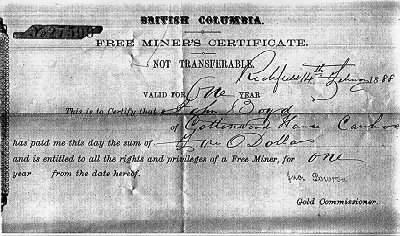 BRITISH COLUMBIA.
FREE MINER'S CERTIFICATE.
NOT TRANSFERABLE.
14th 1888
VALID FOR One YEAR
This is to Certify that John Boyd
of Cottonwood House Cariboo
has paid me this day the sum of Dollars
and is entitled to all the rights and privileges of a Free Miner, for one
year from the date hereof.
Jno. Bowron
Gold Commissioner.